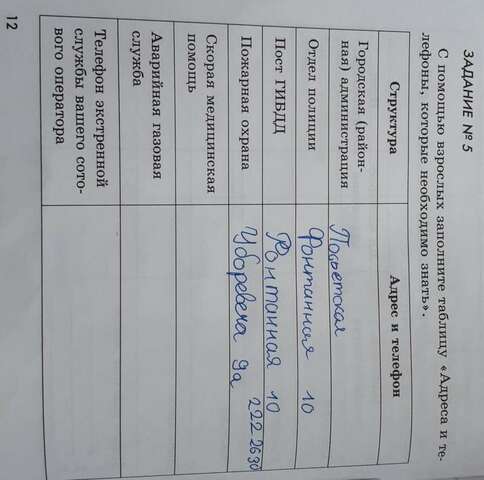 ЗАДАНИЕ № 5
С помощью взрослых заполните таблицу «Адреса и те-
лефоны, которые необходимо знать».
Структура
Адрес и телефон
Городская (район-
ная) администрация
Посьетская
Отдел полиции
Фонтанная 10
Пост ГИБДД
Фонтанная 10
Пожарная охрана
Уборевича 9а 222 26 30
Скорая медицинская
помощь
Аварийная газовая
служба
Телефон экстренной
службы вашего сото-
вого оператора
12